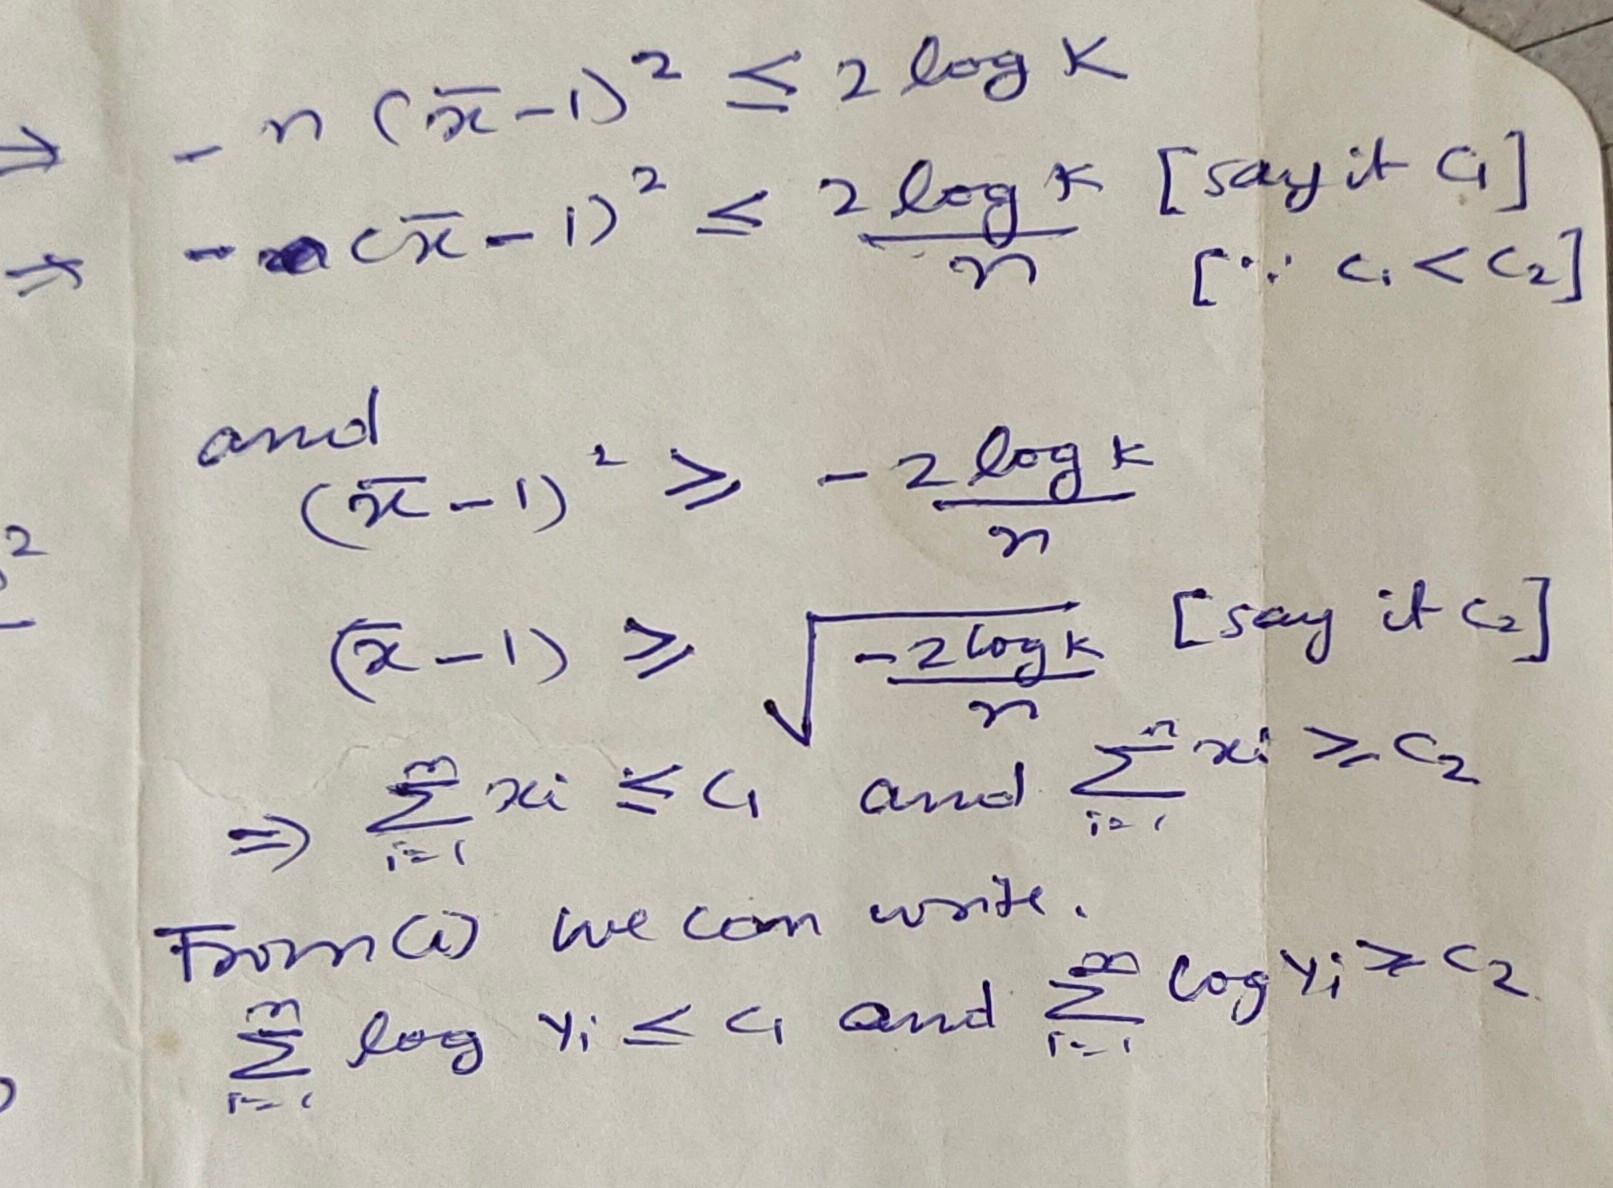 ⇒ - n (x̄ - 1)² ≤ 2 log K
⇒ - (x̄ - 1)² ≤ 2 log K / n [say it C₁]
[∵ C₁ < C₂]
and
(x̄ - 1)² ≥ - 2 log K / n
2
(x̄ - 1) ≥ √(-2 log K / n) [say it C₂]
⇒ ∑ᵢ₌₁ⁿ xᵢ ≤ C₁ and ∑ᵢ₌₁ⁿ xᵢ ≥ C₂
From (i) we can write.
∑ᵢ₌₁ⁿ log Yᵢ ≤ C₁ and ∑ᵢ₌₁ⁿ log Yᵢ ≥ C₂